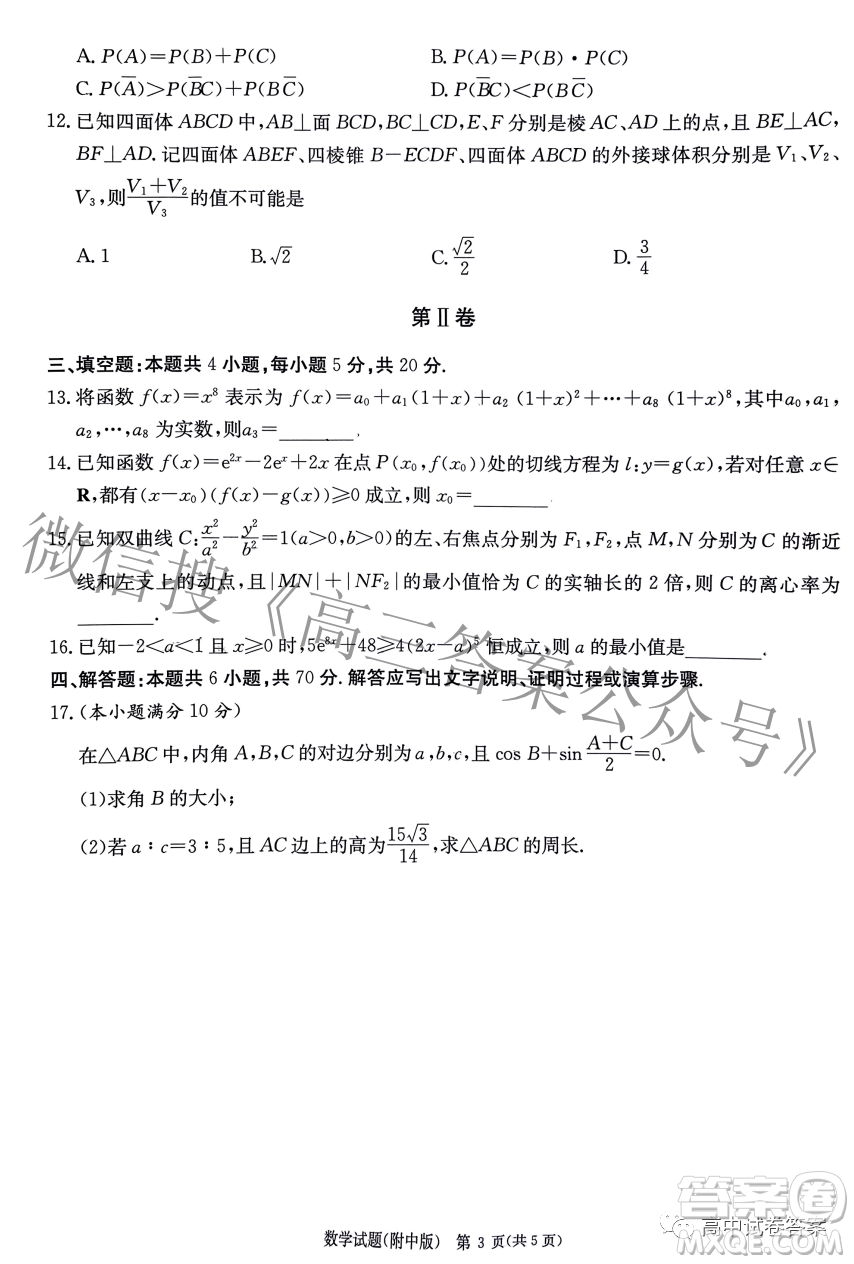 A. P(A)=P(B)+P(C)
B. P(A)=P(B)·P(C)
C. P(A̅)>P(B̅C)+P(BC̅)
D. P(B̅C)<P(BC̅)
12. 已知四面体 ABCD 中,AB⊥面 BCD,BC⊥CD,E、F 分别是棱 AC、AD 上的点,且 BE⊥AC,
BF⊥AD. 记四面体 ABEF、四棱锥 B-ECDF、四面体 ABCD 的外接球体积分别是 V₁、V₂、
V₃,则(V₁+V₂)/V₃的值不可能是
A. 1
B. √2
C. √2/2
D. 3/4
第Ⅱ卷
三、填空题:本题共 4 小题,每小题 5 分,共 20 分.
13. 将函数 f(x)=x⁸ 表示为 f(x)=a₀+a₁(1+x)+a₂(1+x)²+…+a₈(1+x)⁸,其中a₀,a₁,
a₂,…,a₈ 为实数,则a₃=________.
14. 已知函数 f(x)=e²ˣ-2eˣ+2x 在点 P(x₀,f(x₀))处的切线方程为 l:y=g(x),若对任意 x∈
R,都有(x-x₀)(f(x)-g(x))≥0 成立,则 x₀=________.
15. 已知双曲线 C:x²/a²-y²/b²=1(a>0,b>0)的左、右焦点分别为 F₁,F₂,点 M,N 分别为 C 的渐近
线和左支上的动点,且|MN|+|NF₂|的最小值恰为 C 的实轴长的 2 倍,则 C 的离心率为
________.
16. 已知-2<a<1 且 x≥0 时,5e⁸ˣ+48≥4(2x-a)⁵ 恒成立,则 a 的最小值是________.
四、解答题:本题共 6 小题,共 70 分. 解答应写出文字说明、证明过程或演算步骤.
17.(本小题满分 10 分)
在△ABC 中,内角 A,B,C 的对边分别为 a,b,c,且 cos B+sin (A+C)/2=0.
(1)求角 B 的大小;
(2)若 a∶c=3∶5,且 AC 边上的高为15√3/14,求△ABC 的周长.
微信搜《高三答案公众号》
数学试题(附中版) 第 3 页(共 5 页)
答案卷
高中试卷答案
MXQE.COM